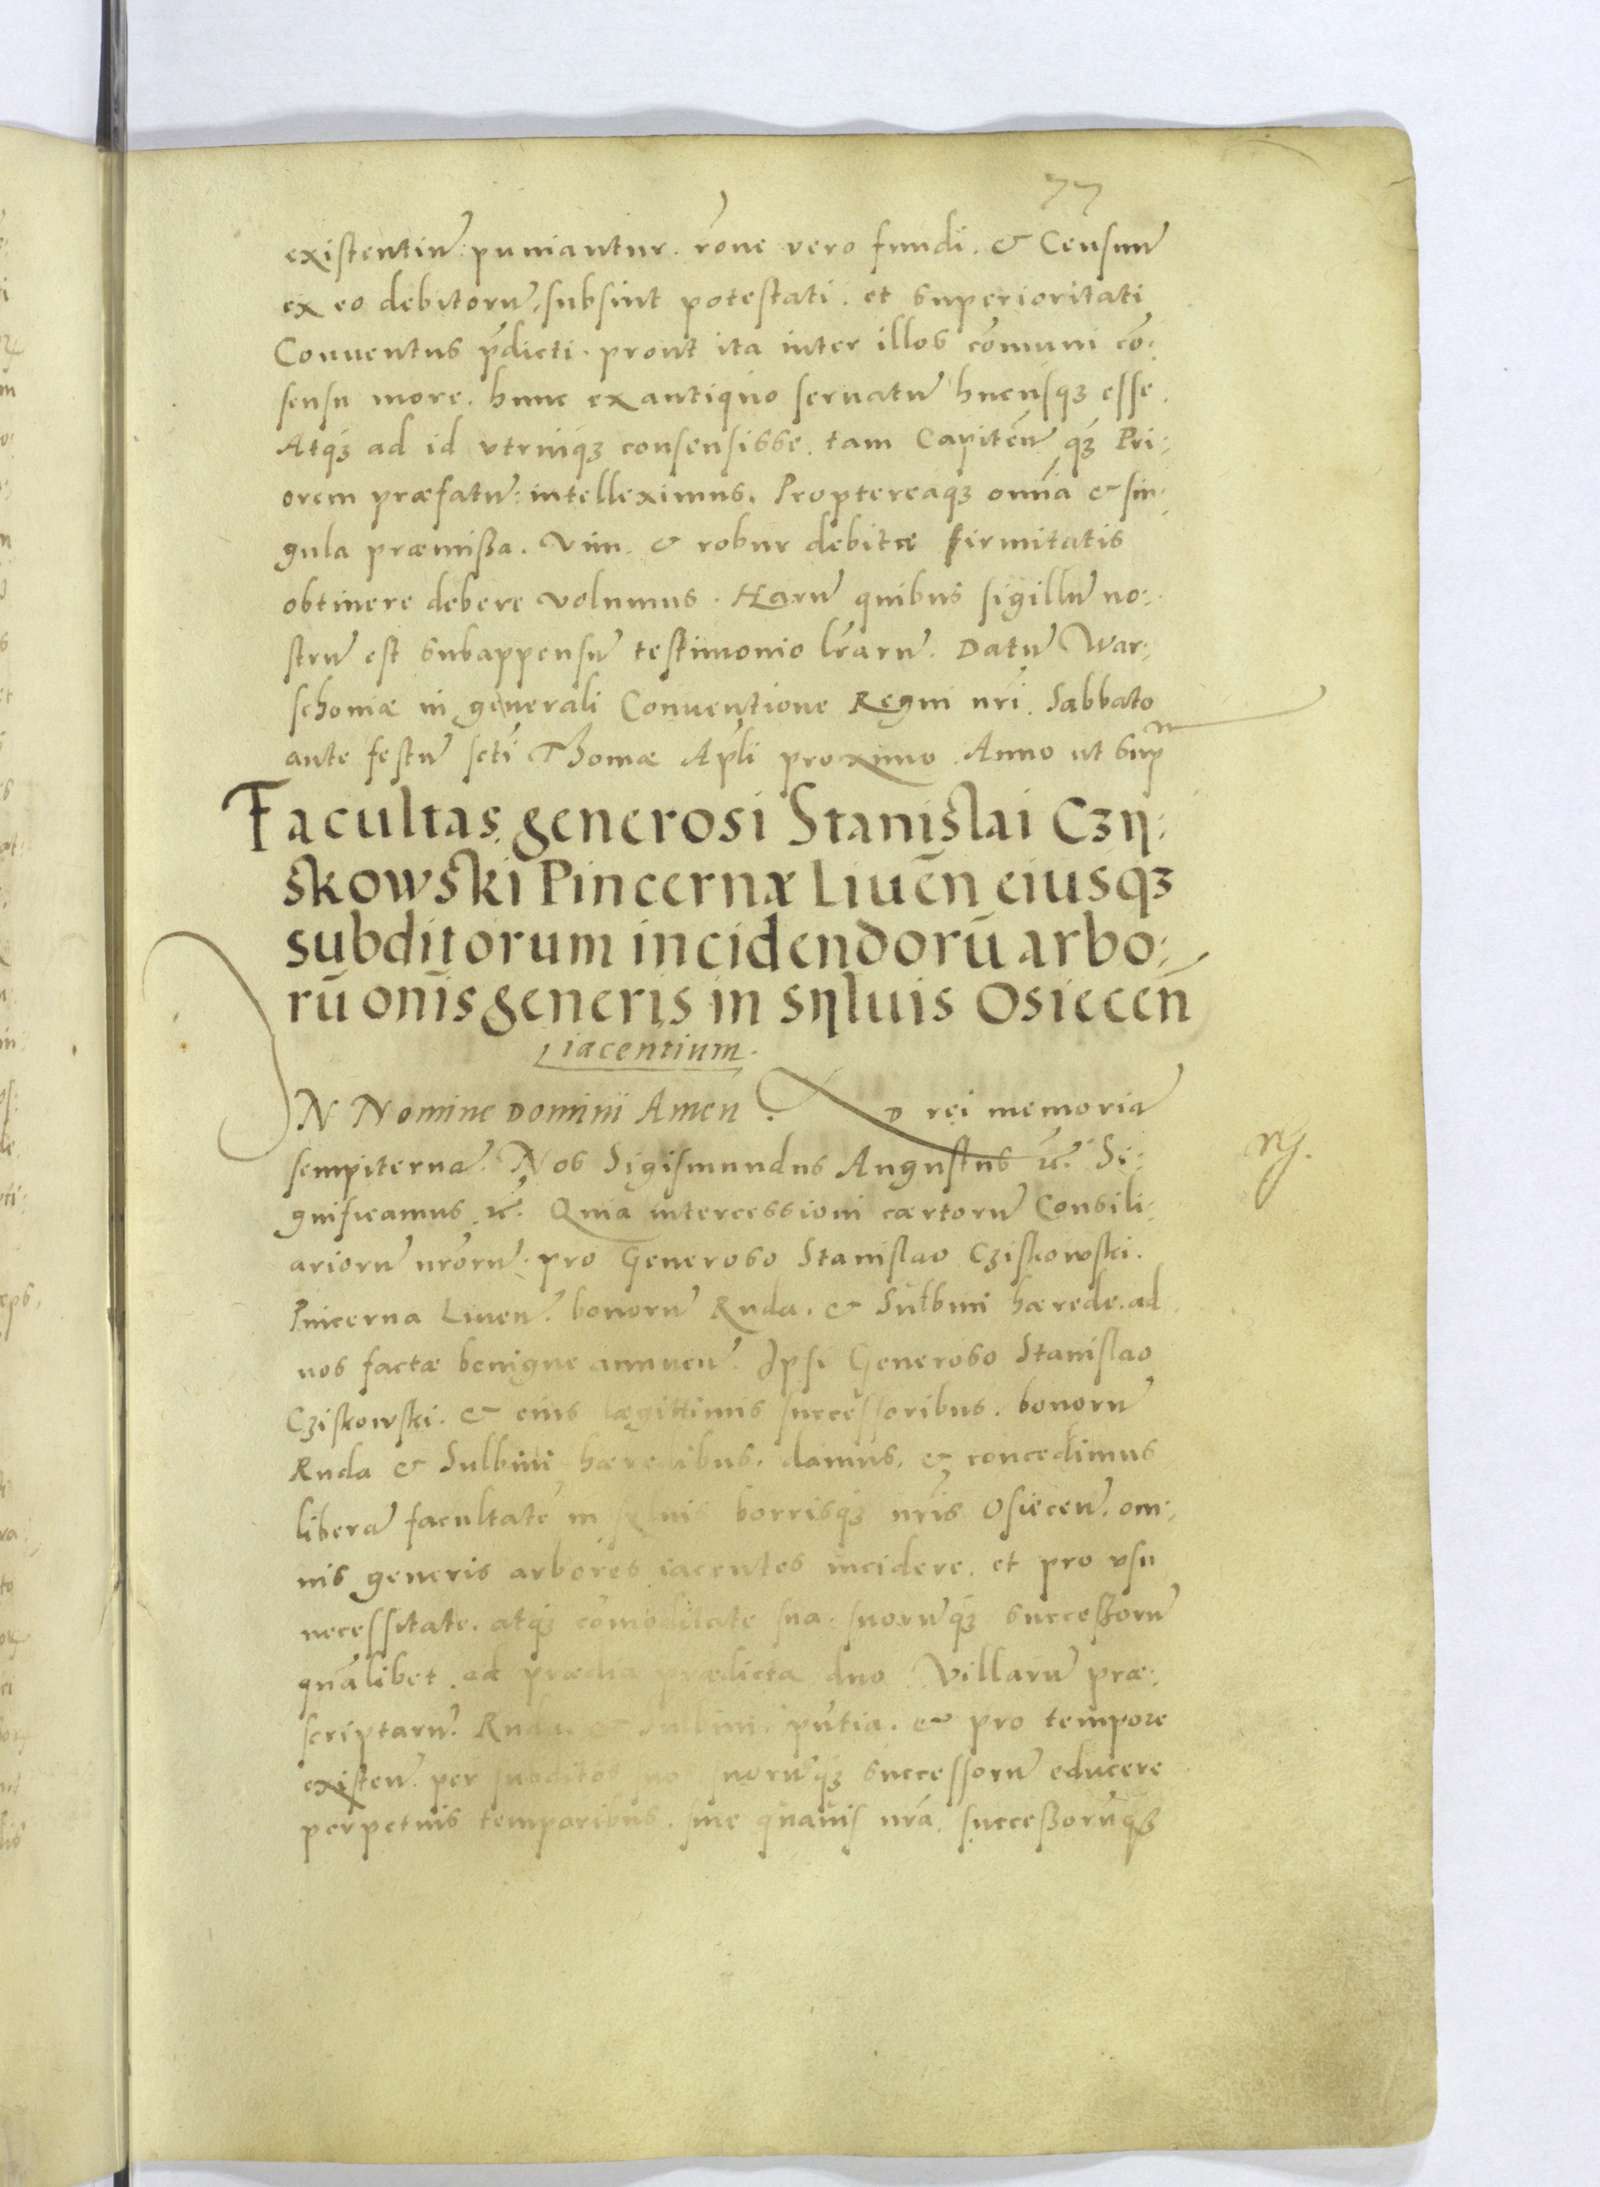 77
existentiũ puniantur. rõne vero fundi. & Censuũ
ex eo debitorũ, subsint potestati. et superioritati
Conuentus p̃dicti. prout ita inter illos cõmuni cõ:
sensu more. hunc ex antiquo seruatũ hucusqʒ esse.
Atqʒ ad id vtrinqʒ consensisse. tam Capitẽũ qʒ Pri:
orem præfatũ: intelleximus. Proptereaqʒ omĩa & sin:
gula præmißa. vim. & robur debitæ firmitatis
obtinere debere volumus. Harũ quibus sigillũ no:
strũ est subappensũ testimonio lr̃arũ. Datũ War:
schoniæ in generali Conuentione Regni nr̃i. Sabbato
ante festũ scti Thomæ Apl̃i proximo. Anno ut sup̃
Facultas generosi Stanislai Czÿ:
skowski Pincernæ Liuen̄ eiusqʒ
subditorum incidendorū arbo:
rū on̄is generis in sÿluis Osiecen̄
iacentium.
IN Nomine Domini Amen. Ad rei memoriã
sempiternã. Nos Sigismundus Augustus &c̃. Si:
gnificamus &c̃. Quia intercessioni cærtorũ Consili:
ariorũ nr̃orũ. pro Generoso Stanislao Cziskowski.
Pincerna Liuen̄. bonorũ Ruda. & Sulbini hærede. ad
nos factæ benigne annuen̄. Ipsi Generoso Stanislao
Cziskowski. & eius lægittimis successoribus. bonorũ
Ruda & Sulbini hæredibus. damus. & concedimus
liberã facultatẽ in syluis borrisqʒ nr̃is Osiecen̄. om:
nis generis arbores iacentes incidere. et pro vsu
necessitate. atqʒ cõmoditate sua. suorũqʒ succeßorũ
quãlibet ad prædia prædicta duo Villarũ præ:
scriptarũ. Ruda. & Sulbini. pñtia. & pro tempore
existen̄. per subditos suorũqʒ successorũ educere
perpetuis temporibus. sine quauis nr̃a. succeßorũqʒ